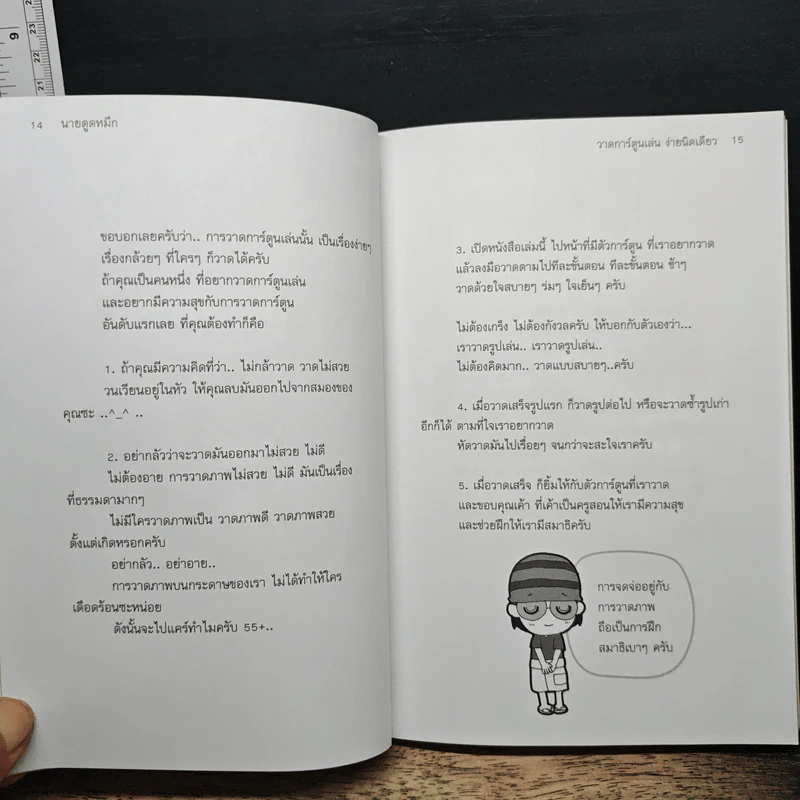 9
23
22
21
14 นายตูดหมึก
ขอบอกเลยครับว่า.. การวาดการ์ตูนเล่นนั้น เป็นเรื่องง่ายๆ
เรื่องกล้วยๆ ที่ใครๆ ก็วาดได้ครับ
ถ้าคุณเป็นคนหนึ่ง ที่อยากวาดการ์ตูนเล่น
และอยากมีความสุขกับการวาดการ์ตูน
อันดับแรกเลย ที่คุณต้องทำก็คือ
1. ถ้าคุณมีความคิดที่ว่า.. ไม่กล้าวาด วาดไม่สวย
วนเวียนอยู่ในหัว ให้คุณลบมันออกไปจากสมองของ
คุณซะ ..^_^ ..
2. อย่ากลัวว่าจะวาดมันออกมาไม่สวย ไม่ดี
ไม่ต้องอาย การวาดภาพไม่สวย ไม่ดี มันเป็นเรื่อง
ที่ธรรมดามากๆ
ไม่มีใครวาดภาพเป็น วาดภาพดี วาดภาพสวย
ตั้งแต่เกิดหรอกครับ
อย่ากลัว.. อย่าอาย..
การวาดภาพบนกระดาษของเรา ไม่ได้ทำให้ใคร
เดือดร้อนซะหน่อย
ดังนั้นจะไปแคร์ทำไมครับ 55+..
วาดการ์ตูนเล่น ง่ายนิดเดียว 15
3. เปิดหนังสือเล่มนี้ ไปหน้าที่มีตัวการ์ตูน ที่เราอยากวาด
แล้วลงมือวาดตามไปทีละขั้นตอน ทีละขั้นตอน ช้าๆ
วาดด้วยใจสบายๆ ร่มๆ ใจเย็นๆ ครับ
ไม่ต้องเกร็ง ไม่ต้องกังวลครับ ให้บอกกับตัวเองว่า...
เราวาดรูปเล่น.. เราวาดรูปเล่น..
ไม่ต้องคิดมาก.. วาดแบบสบายๆ..ครับ
4. เมื่อวาดเสร็จรูปแรก ก็วาดรูปต่อไป หรือจะวาดซ้ำรูปเก่า
อีกก็ได้ ตามที่ใจเราอยากวาด
หัดวาดมันไปเรื่อยๆ จนกว่าจะสะใจเราครับ
5. เมื่อวาดเสร็จ ก็ยิ้มให้กับตัวการ์ตูนที่เราวาด
และขอบคุณเค้า ที่เค้าเป็นครูสอนให้เรามีความสุข
และช่วยฝึกให้เรามีสมาธิครับ
การจดจ่ออยู่กับ
การวาดภาพ
ถือเป็นการฝึก
สมาธิเบาๆ ครับ